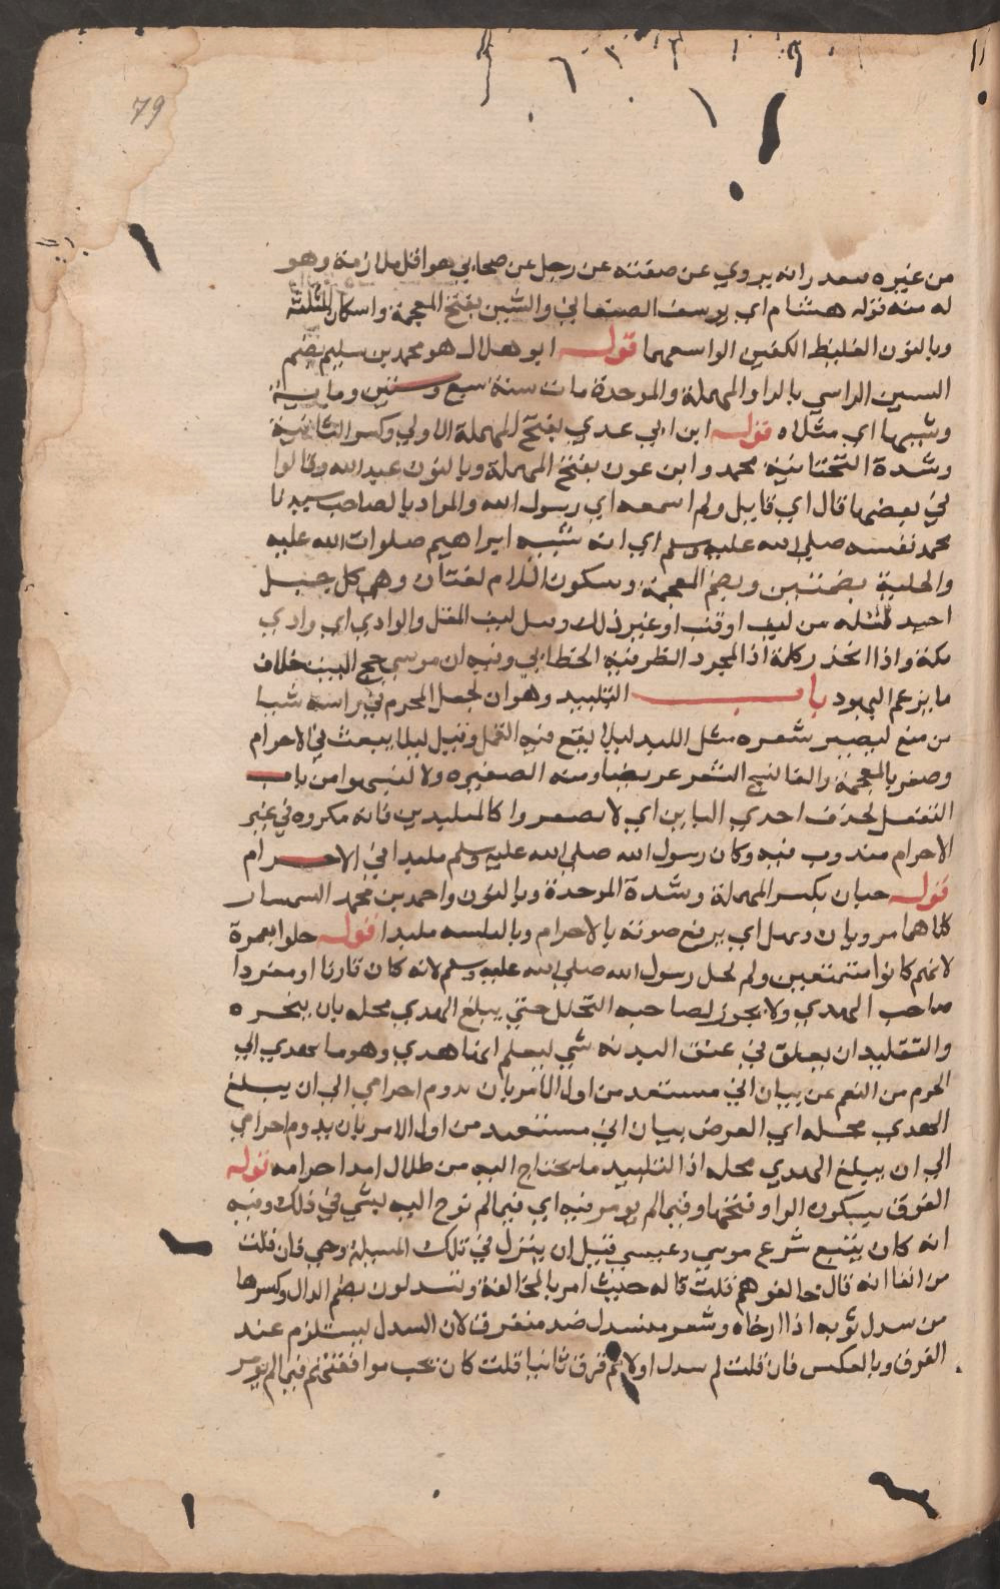 79
من غيره سعد رانه يروي عن صفته عن رجل عن صحابي هو اقل ملازمة وهو
له منه قوله هشام اي يوسف الصنعاني والشين بفتح المعجمة واسكان المثلثة
وبالنون الغليظ الكفين الواسعهما قوله ابو هلال هو محمد بن سليم بضم
السين الراسي بالراو المهملة والموحدة مات سنة سبع وستين وماية
وشبهها اي مثلاه قوله ابن ابي عدي بفتح المهملة الاولي وكسر الثانية
وشدة التحتانية محمد وابن عون بفتح المهملة وبالنون عبد الله وقالوا
في بعضها قال اي قايل ولم اسمعه اي رسول الله والمراد بالصاحب سيدنا
محمد نفسه صلي الله عليه وسلم اي انه شبيه ابراهيم صلوات الله عليه
والخلبة بضمتين وبضم المعجمة وسكون اللام لغتان وهي كل حبل
اجيد فتله من ليف او قنب او غير ذلك وسل ليف المقل والوادي اي وادي
مكة واذا انحذر وكلمة اذا لمجرد الظرفية الخطابي وفيه ان موسي حج البيت خلاف
ما يزعم اليهود باب التلبيد وهو ان يجعل المحرم في راسه شيا
من صمغ ليصير شعره مثل اللبد ليلا يقع فيه القمل وقيل ليلا يبعث في الاحرام
وضفر بالمعجمة والفا نسج الشعر عريضا ومنه الضفيره ولا تشبهوا من باب
التفعل بحذف احدي التاين اي لا تضفروا كالملبدين فانه مكروه في غير
الاحرام مندوب فيه وكان رسول الله صلي الله عليه وسلم ملبدا في الاحرام
قوله حبان بكسر المهملة وشدة الموحدة وبالنون واحمد بن محمد السمسار
كلاهما مروزيان ويهل اي يرفع صوته بالاحرام وبالتلبيه ملبدا قوله حلوا بعمرة
لانهم كانوا متمتعين ولم يحل رسول الله صلي الله عليه وسلم لانه كان قارنا او مفردا
صاحب الهدي ولا يجوز لصاحبه التحلل حتي يبلغ الهدي محله بان ينحره
والتقليد ان يعلق في عنق البدنه شي ليعلم انها هدي وهو ما يهدي الي
الحرم من النعم عن بيان اني مستعد من اول الامر بان يدوم احرامي الي ان يبلغ
الهدي محله اي الغرض بيان اني مستعد من اول الامر بان يدوم احرامي
الي ان يبلغ الهدي محله اذ التلبيد ما يحتاج اليه من طال امد احرامه قوله
الفرق بسكون الرا وفتحها وفيما لم يومر فيه اي فيما لم يوح اليه بشي في ذلك وفيه
انه كان يتبع شرع موسي وعيسي قبل ان ينزل في تلك المسيلة وحي فان قلت
مر انفا انه قال خالفوهم قلت قاله حيث امر بالمخالفة وتسدلون بضم الدال وكسرها
من سدل ثوبه اذا ارخاه وشعر منسدل ضد متفرق لان السدل يستلزم عند
الفرق وبالعكس فان قلت لم سدل اولا ثم فرق ثانيا قلت كان يحب موافقتهم فيما لم يومر